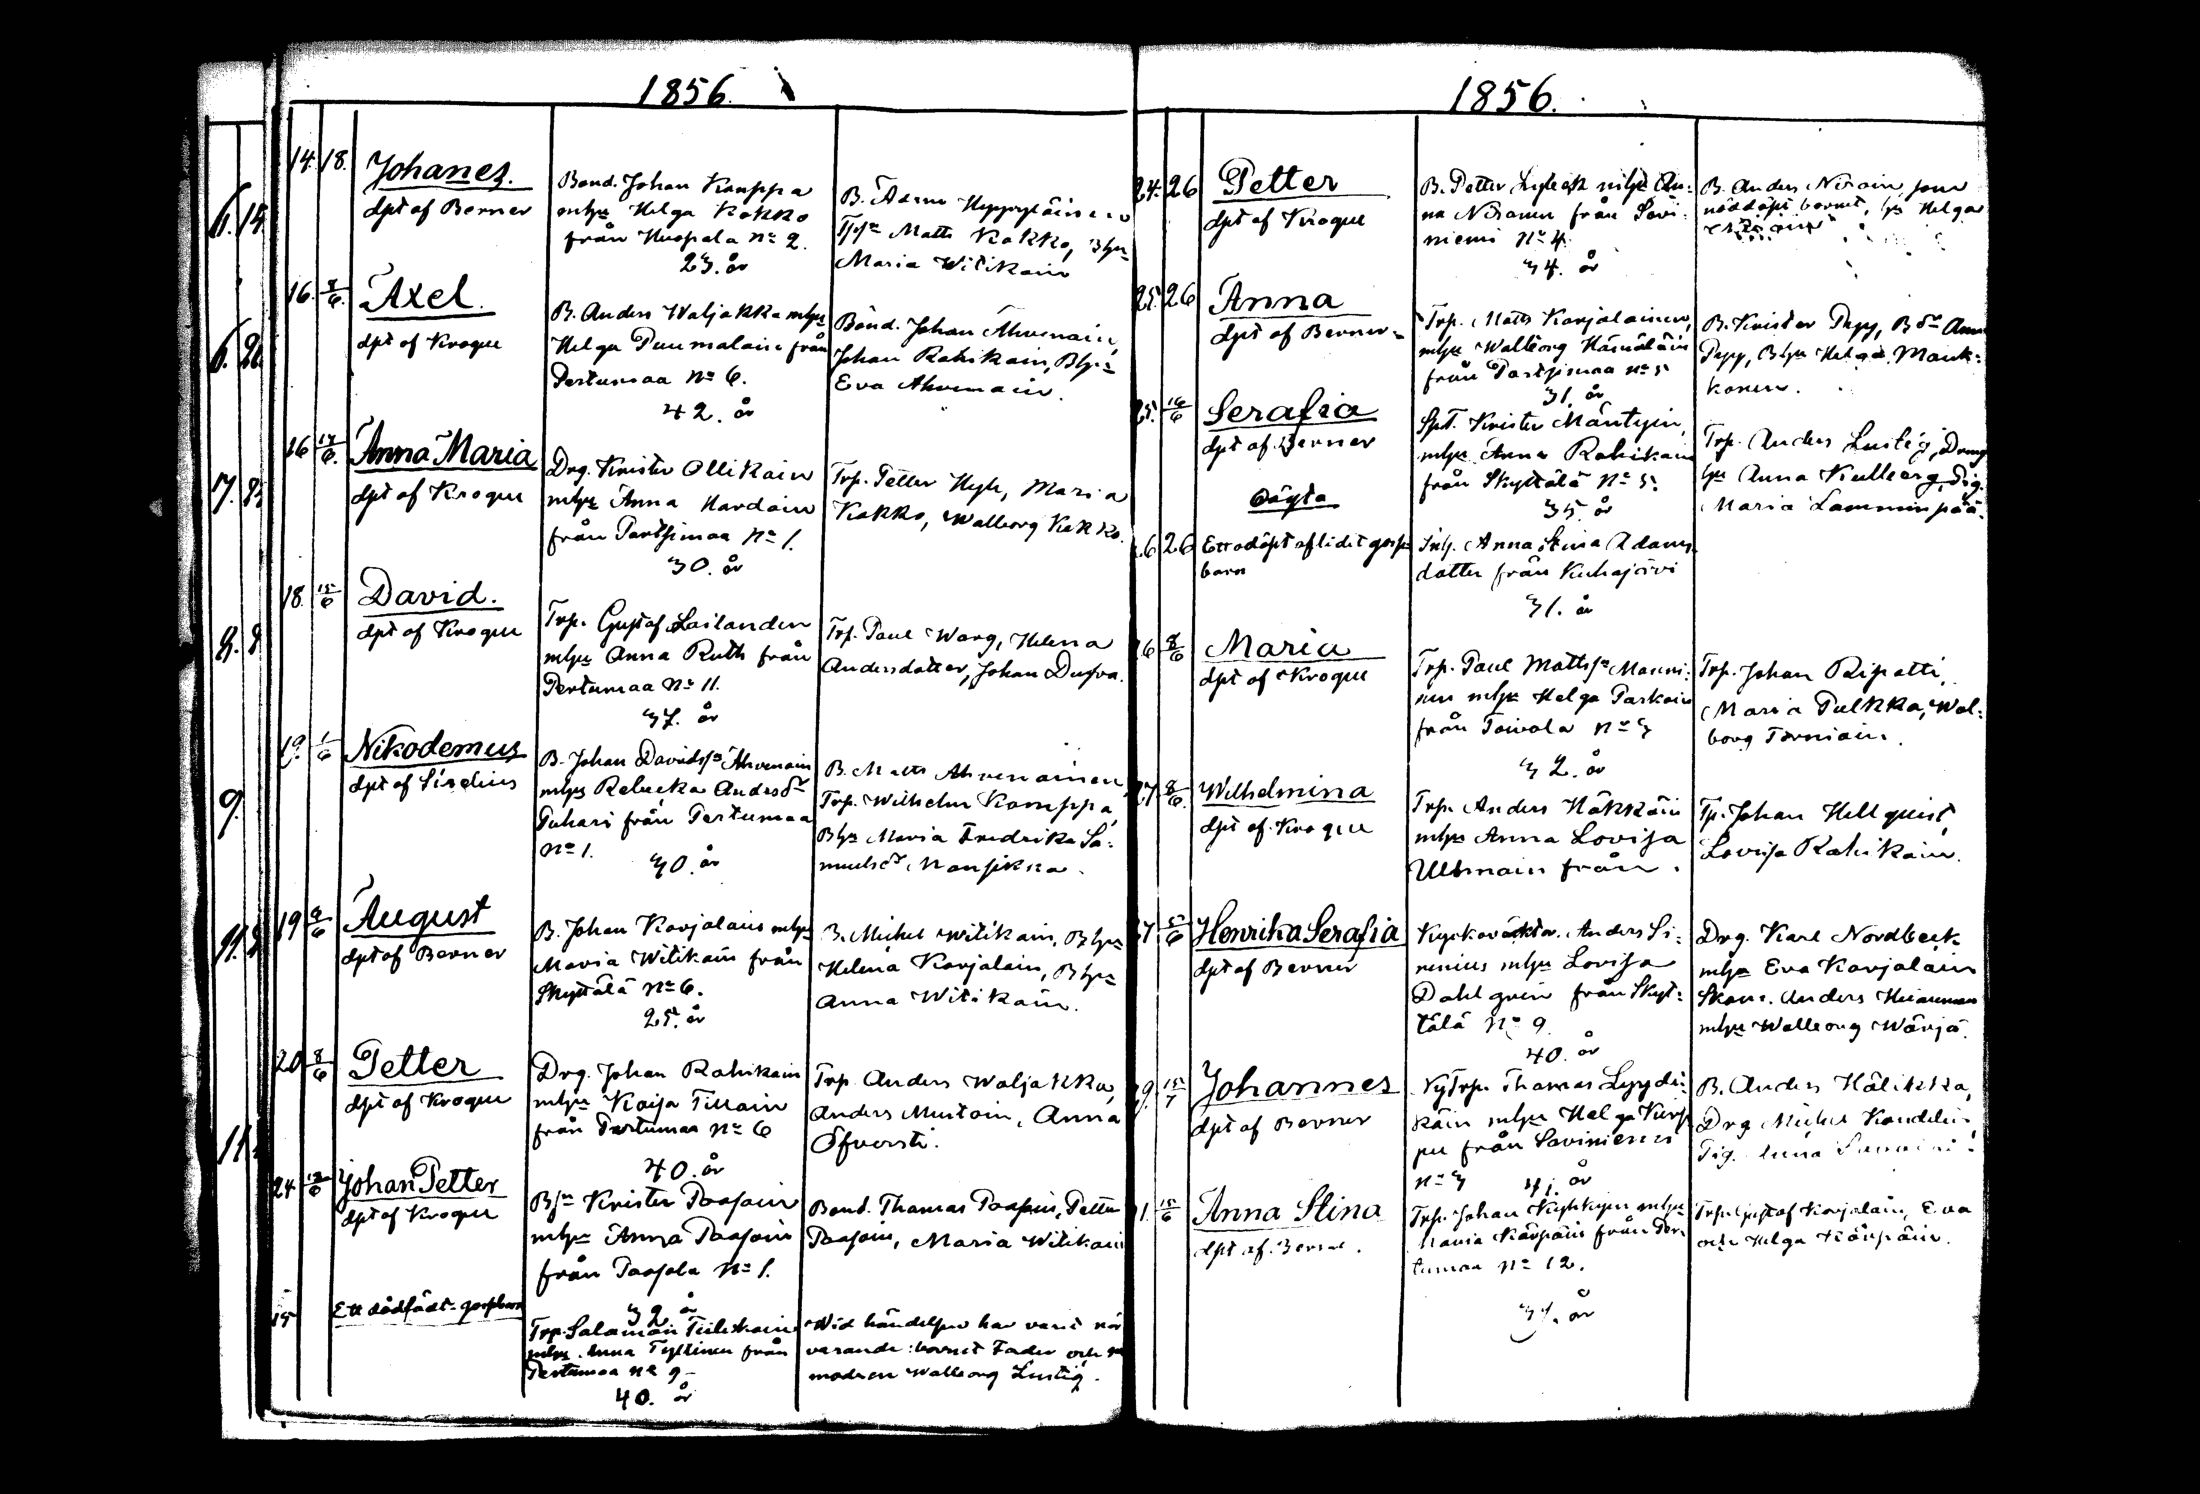 1856.
6. 15
6. 26
7.
8. 8
9.
11.
11
14. 18. Johanes.
dpt af Berner
Bond. Johan Kamppa
mhu Helga Kokko
från Huopala No 2.
23. år
B. Adam
Matts Kokko,
Maria Witikain
16. 8/6. Axel.
dpt af Krogue
B. Anders Waljakka mhu
Helga Puumalain från
Pertumaa No 6.
42. år
Bond. Johan Ahvenain,
Johan Rahikain, Bhu
Eva Ahvenain.
16 Anna Maria
dpt af Krogue
Drg. Krister Ollikain
mhu Anna Hardain
från Partsimaa No 1.
30. år
Trp. Petter Hyh, Maria
Kokko, Walborg Kokko.
18. 15/6 David.
dpt af Krogue
Trp. Gustaf Lailanden
mhu Anna Ruth från
Pertumaa No 11.
37. år
Trp. Paul Warg, Helena
Andersdotter, Johan Dufva.
19. 1/6 Nikodemus
dpt af Sirelius
B. Johan Davidss Ahvenain
mhu Rebecka Andersdr
Tuhari från Pertumaa
No 1. 30. år
B. Matts Ahvenainen
Trp. Wilhelm Kamppa,
Bhu Maria Fredrika Sa-
muelsdr Mansikka.
19 8/6 August
dpt af Berner
B. Johan Karjalain mhu
Maria Witikain från
Skyttälä No 6.
25. år
B. Michel Witikain, Bhu
Helena Karjalain, Bhu
Anna Witikain.
20 8/6 Petter
dpt af Krogue
Drg. Johan Rahikain
mhu Kaija Tissain
från Pertumaa No 6
40. år
Trp. Anders Waljakka,
Anders Mustain, Anna
Öfversti.
24. Johan Petter
dpt af Krogue
Bsn Krister Paasoin
mhu Anna Paasoin
från Paasola No 1.
32 år
Bond. Thomas Paasoin, Petter
Paasoin, Maria Witikain
Ett dödfödt gossbarn
Trp. Salamon Tiilikain
mhu Anna Tyllinen från
Pertumaa No 9
40. år
Wid händelsen har varit när
varande: barnets Fader och
modren Walborg Lustig.
1856.
24. 26 Petter
dpt af Krogue
B. Petter mhu An-
na Niranen från Savi-
niemi No 4.
34. år
B. Anders Nirain som
nöddöpt barnet, hu Helga
25. 26 Anna
dpt af Berner
Trp. Matts Karjalainen,
mhu Walborg Hämäläin
från Partsimaa No 5
31. år
B. Krister Pepp, Bdr Anna
Pepp, Bhu Helga Mank-
konen.
25. Serafia
dpt af Berner
Spt. Krister Mäntyin,
mhu Anna Rahikain
från Skyttälä No 5.
35. år
Trp. Anders Lustig, Dreng
hu Anna Kullberg, Pig.
Maria Lamminpää.
Oägta
26 26 Ett odöpt aflidet goss
barn
Inh. Anna Stina Adams
dotter från Kuhajärvi
31. år
26 8/6 Maria
dpt af Krogue
Trp. Paul Mattss Manni-
nen mhu Helga Parkain
från Toivola No 3
32. år
Trp. Johan Ripatti,
Maria Pulkka, Wal-
borg Torniain.
27. 8/6. Wilhelmina
dpt af Krogue
Trp. Anders Häkkäin
mhu Anna Lovisa
Ullmain från.
Tp. Johan Hellquist,
Lovisa Rahikain.
27 Henrika Serafia
dpt af Berner
Kyrkoväktar. Anders Si-
renius mhu Lovisa
Dahlgrén från Skyt-
tälä No 9.
40. år
Drg. Karl Nordbeck
mhu Eva Karjalain
Anders Heinonen
mhu Walborg Wärjä.
29. 15/7 Johannes
dpt af Berner
NyTrp. Thomas Lyydi-
käin mhu Helga Kurp
pu från Saviniemi
No 3 41. år
B. Anders Hälikka,
Drg Michel Kandelin
Pig.
15/6 Anna Stina
dpt af Berner.
Trp. Johan Kyhkynen mhu
Maria Kärpäin från Per
tumaa No 12.
37. år
Trp. Gustaf Karjalain, Eva
och Helga Kärpäin.